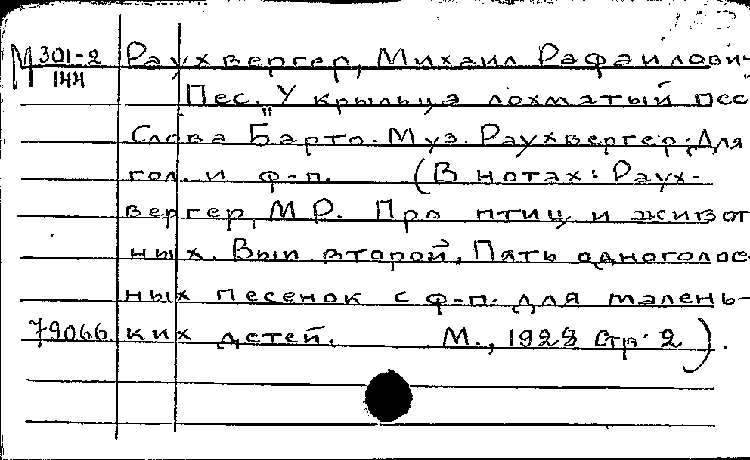 М 301-2 Раухвергер, Михаил Рафаилович
144
Пес. „У крыльца лохматый пес
Слова Барто. Муз. Раухвергер. Для
гол. и ф-п. (В нотах: Раух-
вергер, М Р. Про птиц и живот
ных. Вып второй. Пять одноголос
ных песенок с ф-п. для малень-
79066 ких детей. М., 1928 Стр. 2).